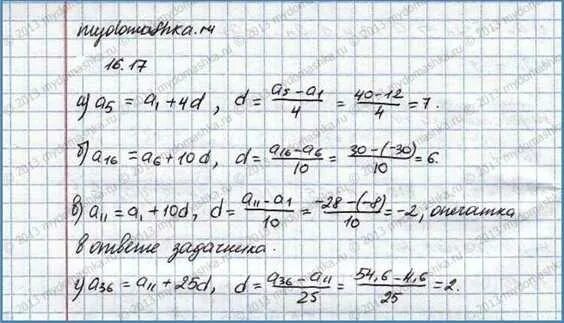 mydomashka.ru
16.17
а) a₅ = a₁ + 4d, d = (a₅ − a₁)/4 = (40 − 12)/4 = 7.
б) a₁₆ = a₆ + 10d, d = (a₁₆ − a₆)/10 = (30 − (−30))/10 = 6.
в) a₁₁ = a₁ + 10d, d = (a₁₁ − a₁)/10 = (−28 − (−8))/10 = −2, опечатка
в ответе задачника.
г) a₃₆ = a₁₁ + 25d, d = (a₃₆ − a₁₁)/25 = (54,6 − 4,6)/25 = 2.